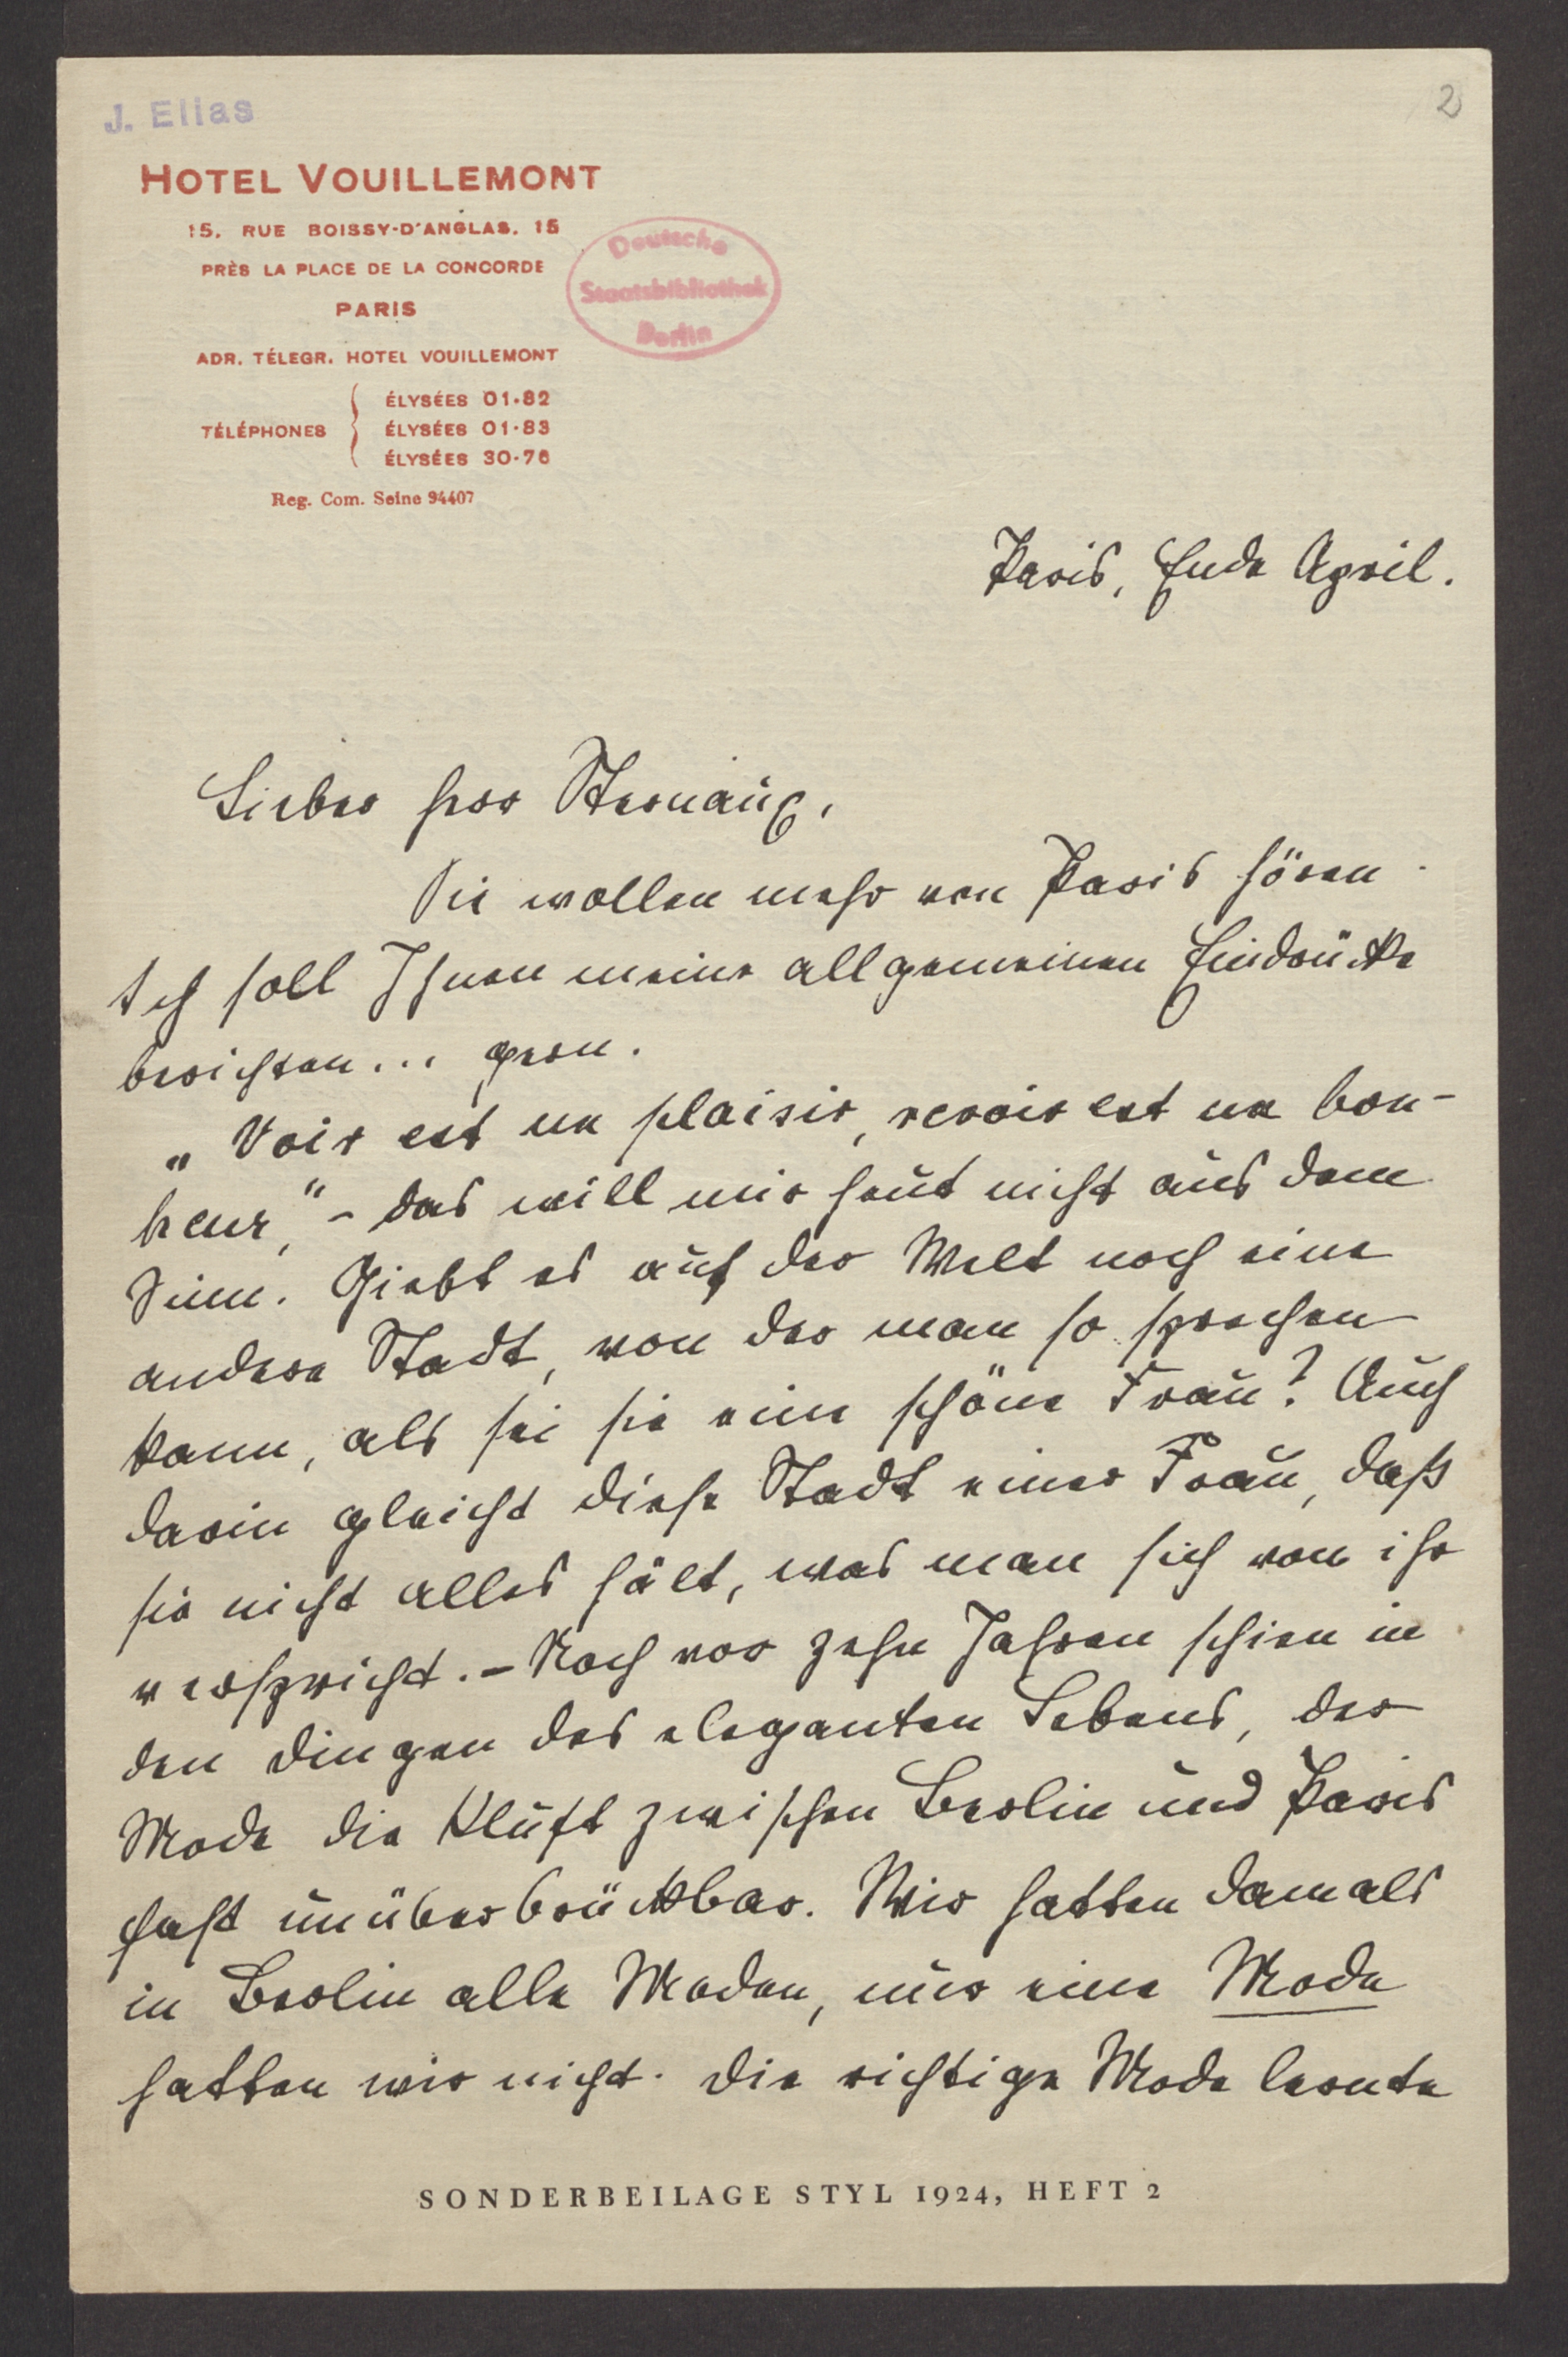 J. Elias
2
HOTEL VOUILLEMONT
15, RUE BOISSY-D'ANGLAS, 15
PRÈS LA PLACE DE LA CONCORDE
PARIS
ADR. TÉLEGR. HOTEL VOUILLEMONT
TÉLÉPHONES
ÉLYSÉES 01-82
ÉLYSÉES 01-83
ÉLYSÉES 30-76
Reg. Com. Seine 94407
Deutsche
Staatsbibliothek
Berlin
Paris, Ende April.
Lieber Herr Sternaux,
Sie wollen mehr von Paris hören.
Ich soll Ihnen meine allgemeinen Eindrücke
berichten... gern.
„Voir est un plaisir, revoir est un bon-
heur," - das will mir heut nicht aus dem
Sinn. Giebt es auf der Welt noch eine
andere Stadt, von der man so sprechen
kann, als sei sie eine schöne Frau? Auch
darin gleicht diese Stadt einer Frau, daß
sie nicht alles hält, was man sich von ihr
verspricht. - Noch vor zehn Jahren schien in
den Dingen des eleganten Lebens, der
Mode die Kluft zwischen Berlin und Paris
fast unüberbrückbar. Wir hatten damals
in Berlin alle Moden, nur eine Mode
hatten wir nicht. Die richtige Mode lernte
SONDERBEILAGE STYL 1924, HEFT 2